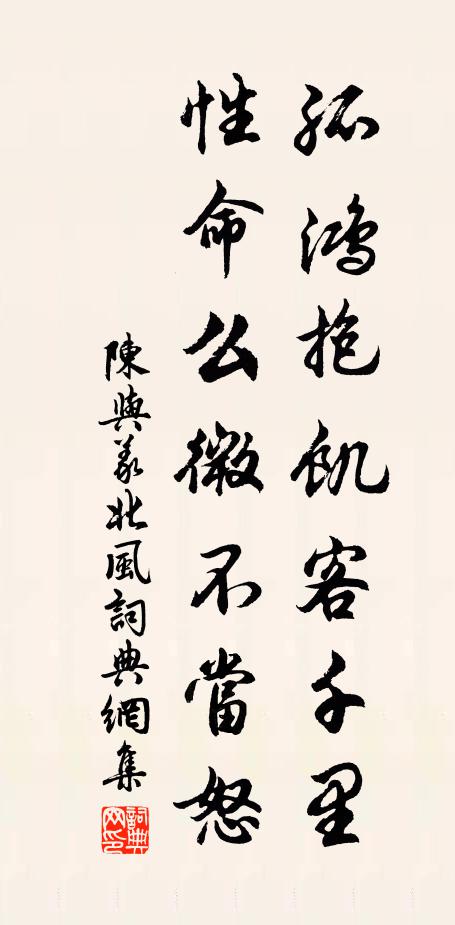 孤鴻抱飢客千里
性命么微不當怒
陳與義北風詞典網集
詞典
網印